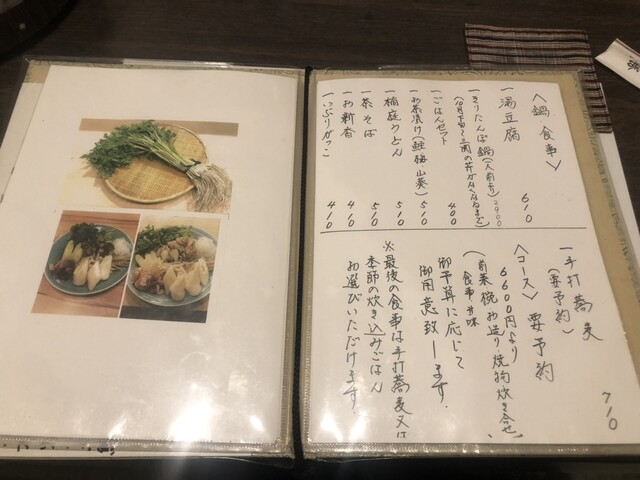 〈鍋 食事〉
一湯豆腐 610
一きりたんぽ鍋(一人前より) 2900
(10月下旬〜三関の芹がなくなるまで)
一ごはんセット 400
一お茶漬け(鮭・梅・山葵) 510
一稲庭うどん 510
一茶そば 510
一お新香 410
一いぶりがっこ 410
一手打蕎麦 710
(要予約)
〈コース〉要予約
6600円より
(前菜 椀 お造り 焼物 炊き合せ
食事 甘味)
御予算に応じて
御用意致します。
※最後の食事は手打蕎麦又は
季節の炊き込みごはん
お選びいただけます。